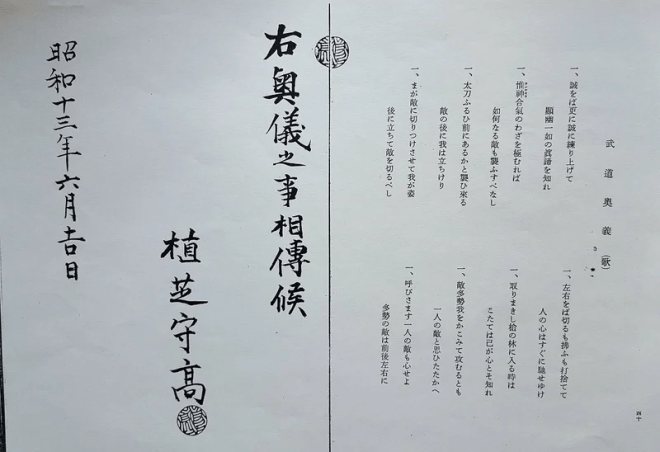 武道奥義(歌)
一、誠をば更に誠に練り上げて
顯幽一如の眞諦を知れ
一、惟神合氣のわざを極むれば
如何なる敵も襲ふすべなし
一、太刀ふるひ前にあるかと襲ひ來る
敵の後に我は立ちけり
一、まが敵に切りつけさせて我が姿
後に立ちて敵を切るべし
一、左右をば切るも拂ふも打捨てて
人の心はすぐに馳せゆけ
一、取りまきし槍の林に入る時は
こたては己が心とぞ知れ
一、敵多勢我をかこみて攻むるとも
一人の敵と思ひたたかへ
一、呼びさます一人の敵も心せよ
多勢の敵は前後左右に
四十
右奥儀之事相傳候
植芝守高
昭和十三年六月吉日